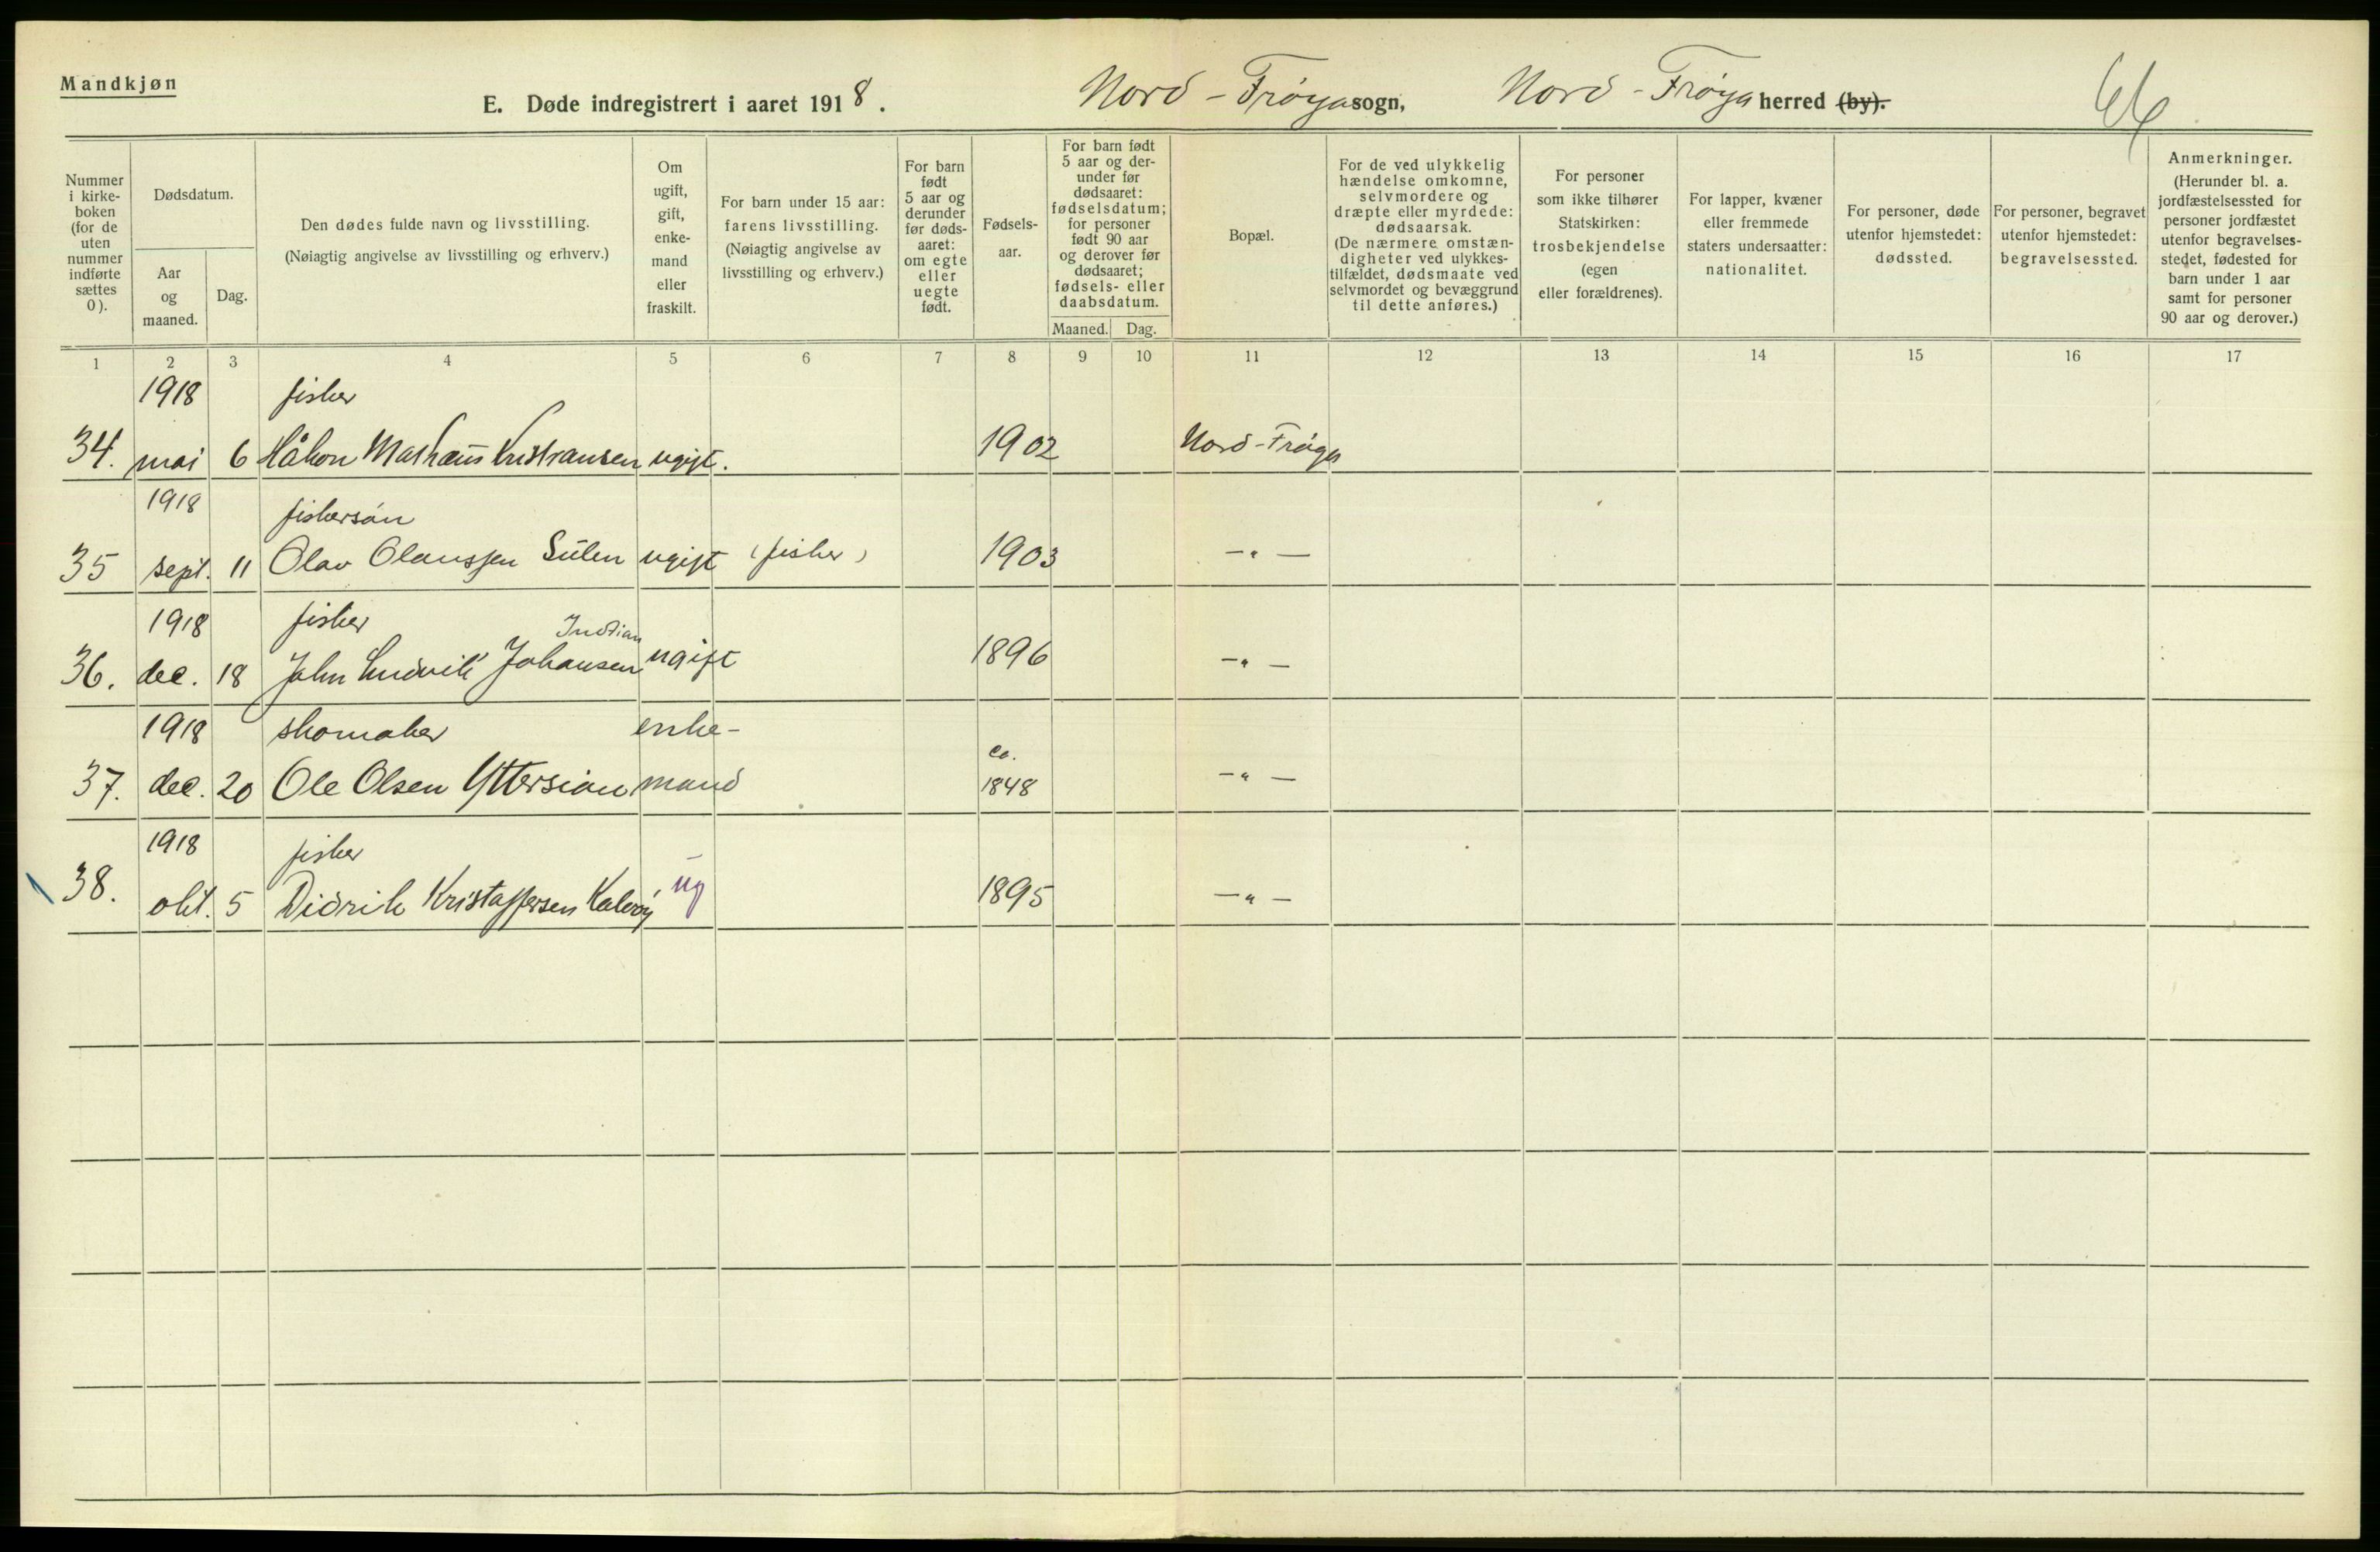 Mandkjøn
E. Døde indregistrert i aaret 1918. Nord-Frøya sogn, Nord-Frøya herred (by).
66
Nummer i kirke-boken (for de uten nummer indførte sættes 0).
Dødsdatum.
Aar og maaned.
Dag.
Den dødes fulde navn og livsstilling.
(Nøiagtig angivelse av livsstilling og erhverv.)
Om ugift, gift, enke-mand eller fraskilt.
For barn under 15 aar: farens livsstilling.
(Nøiagtig angivelse av livsstilling og erhverv.)
For barn født 5 aar og derunder før døds-aaret: om egte eller uegte født.
Fødsels-aar.
For barn født 5 aar og der-under før dødsaaret: fødselsdatum; for personer født 90 aar og derover før dødsaaret; fødsels- eller daabsdatum.
Maaned.
Dag.
Bopæl.
For de ved ulykkelig hændelse omkomne, selvmordere og dræpte eller myrdede: dødsaarsak.
(De nærmere omstæn-digheter ved ulykkes-tilfældet, dødsmaate ved selvmordet og bevæggrund til dette anføres.)
For personer som ikke tilhører Statskirken: trosbekjendelse (egen eller forældrenes).
For lapper, kvæner eller fremmede staters undersaatter: nationalitet.
For personer, døde utenfor hjemstedet: dødssted.
For personer, begravet utenfor hjemstedet: begravelsessted.
Anmerkninger.
(Herunder bl. a. jordfæstelsessted for personer jordfæstet utenfor begravelses-stedet, fødested for barn under 1 aar samt for personer 90 aar og derover.)
1 2 3 4 5 6 7 8 9 10 11 12 13 14 15 16 17
1918 fisker
34. mai 6 Håkon Mathæus Kristiansen ugift. 1902 Nord-Frøya
1918 fiskersøn
35 sept. 11 Olav Olaussen Sulen ugift (fisker) 1903 —"—
1918 fisker Indian
36. dec. 18 John Ludvik Johansen ugift 1896 —"—
1918 skomaker enke- ca.
37. dec. 20 Ole Olsen Yttersian mand 1848 —"—
1918 fisker
38. okt. 5 Didrik Kristoffersen Kalvøy ug 1895 —"—